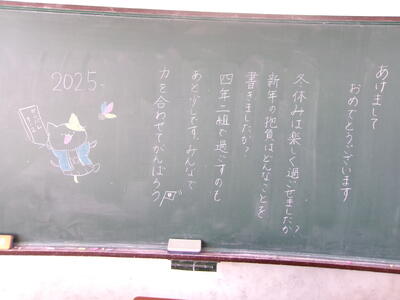 あけまして
おめでとうございます
冬休みは楽しく過ごせましたか?
新年の抱負はどんなことを
書きましたか?
四年二組で過ごすのも
あと少しです。みんなで
力を合わせてがんばろう
2025